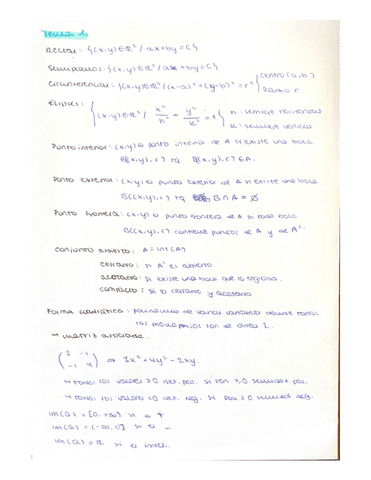 Tema 1.
Rectas: {(x,y) ∈ ℝ² / ax+by=c}
Semiplanos: {(x,y) ∈ ℝ² / ax+by≤c}
Circunferencias: {(x,y) ∈ ℝ² / (x-a)²+(y-b)²=r² { centro (a,b)
Radio r
Elipses: {(x,y) ∈ ℝ² / x²/h² + y²/k² = 1 { h: semieje horizontal
k: semieje vertical
Punto interior: (x,y) es punto interior de A si existe una bola
B((x,y),r) tq B((x,y),r) ⊂ A.
Punto exterior: (x,y) es punto exterior de A si existe una bola
B((x,y),r) tq B ∩ A = ∅
Punto frontera: (x,y) es punto frontera de A si toda bola
B((x,y),r) contiene puntos de A y de Aᶜ.
Conjunto abierto: A = int(A)
cerrado: si Aᶜ es abierto
acotado: si existe una bola que lo engloba.
compacto: si es cerrado y acotado
Forma cuadrática: polinomio de varias variables donde todos
los monomios son de grado 2.
→ matriz asociada.
(3 -1
-1 4) ⇒ 3x²+4y²-2xy.
→ todos los valores >0 def. pos. si son ≥0 semidef. pos.
→ todos los valores <0 def. neg. si son ≤0 semidef. neg.
Im(Q) = [0,+∞) si es +
Im(Q) = (-∞,0] si es -
Im(Q) = ℝ si es indef.